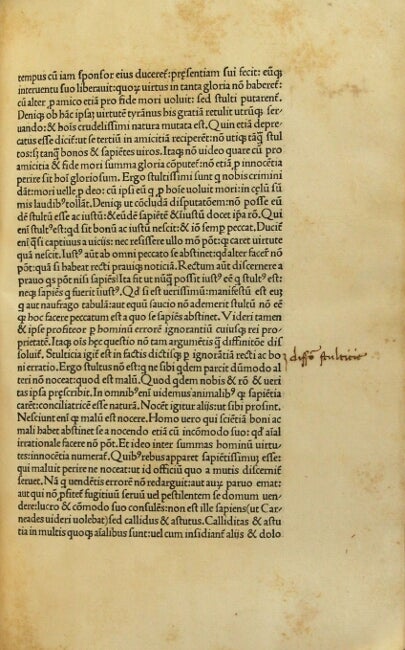 tempus cũ iam sponsor eius duceret: pręsentiam sui fecit: eũqꝫ
interuentu suo liberauit: quoꝝ uirtus in tanta gloria nõ haberet:
cũ alter ꝑ amico etiã pro fide mori uoluit: sed stulti putarent.
Deniqꝫ ob hãc ipsaꝫ uirtutẽ tyrãnus his gratiã retulit utrũqꝫ ser-
uando: & hoĩs crudelissimi natura mutata est. Quin etiã depre-
catus esse dicit̃: ut se tertiũ in amicitiã reciperẽt: nõ utiqꝫ tãqꝫ stul
tos: sꝫ tanqꝫ bonos & sapiẽtes uiros. Itaqꝫ nõ uideo quare cũ pro
amicitia & fide mori summa gloria cõputet̃: nõ etiã ꝑ innocẽtia
perire sit hoĩ gloriosum. Ergo stultissimi sunt q nobis crimini
dãt: mori uelle ꝑ deo: cũ ipsi eũ q ꝑ hoĩe uoluit mori: in cęlũ sũ
mis laudibꝰ tollãt. Deniqꝫ ut cõcludã disputatõem: nõ posse eũ
dẽ stultũ esse ac iustũ: & eũdẽ sapiẽtẽ & iniustũ docet ipa rõ. Qui
enĩ stultꝰ est: qd sit bonũ ac iustũ nescit: & iõ semꝑ peccat. Ducit̃
enĩ q̃si captiuus a uicijs: nec resistere ullo mõ põt: qꝫ caret uirtute
quã nescit. Iustꝰ aũt ab omni peccato se abstinet: qd alter facẽ nõ
põt: quã si habeat recti prauiqꝫ noticiã. Rectum aũt discernere a
prauo qs põt nisi sapiẽs? Ita fit ut nũqꝫ possit iustꝰ eẽ q stultꝰ est:
neqꝫ sapiẽs q fuerit iustꝰ. Qd si est uerissimũ: manifestũ est eum
q aut naufrago tabulã: aut equũ saucio nõ ademerit stultũ nõ eẽ
qꝫ hoc facere peccatum est a quo se sapiẽs abstinet. Videri tamen
& ipse profiteor ꝑ hominũ errorẽ ignorantiũ cuiusqꝫ rei pro-
prietatẽ. Itaqꝫ oĩs hęc questio nõ tam argumẽtis q̃ diffinitõe dis
soluit̃. Stulticia igit̃ est in factis dictisqꝫ ꝑ ignorãtiã recti ac bo
ni erratio. Ergo stultus nõ est: q ne sibi qdem parcit dũmodo al
teri nõ noceat: quod est malũ. Quod qdem nobis & rõ & ueri
tas ipsa pręscribit. In omnibꝰ enĩ uidemus animalibꝰ qꝫ sapiẽtia
carẽt: conciliatricẽ esse naturã. Nocẽt igitur alijs: ut sibi prosint.
Nesciunt enĩ qꝫ malũ est nocere. Homo uero qui sciẽtiã boni ac
mali habet abstinet se a nocendo etiã cũ incõmodo suo: qd aĩal
irrationale facere nõ põt. Et ideo inter summas hominũ uirtu-
tes: innocẽtia numerat̃. Quibꝰ rebus apparet sapiẽtissimuꝫ esse:
qui maluit perire ne noceat: ut id officiũ quo a mutis discernit̃
seruet. Nã q uendẽtis errorẽ nõ redarguit: aut auꝝ paruo emat:
aut qui nõ ꝓfitet̃ fugitiuũ seruũ uel pestilentem se domum uen-
dere: lucro & cõmodo suo consulẽs: non est ille sapiens (ut Car-
neades uideri uolebat) sed callidus & astutus. Calliditas & astu
tia in multis quoqꝫ aĩalibus sunt: uel cum insidiant̃ alijs & dolo
diffõ stulticie